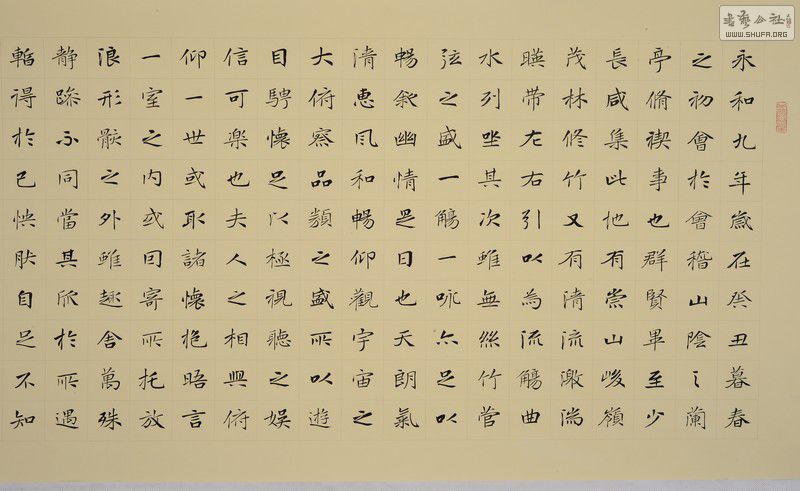 永和九年歲在癸丑暮春
之初會於會稽山陰之蘭
亭脩禊事也群賢畢至少
長咸集此地有崇山峻嶺
茂林修竹又有清流激湍
暎帶左右引以為流觴曲
水列坐其次雖無絲竹管
弦之盛一觴一詠亦足以
暢叙幽情是日也天朗氣
清惠風和暢仰觀宇宙之
大俯察品類之盛所以遊
目騁懷足以極視聽之娛
信可楽也夫人之相與俯
仰一世或取諸懷抱晤言
一室之内或因寄所托放
浪形骸之外雖趣舍萬殊
静躁不同當其欣於所遇
暫得於己怏然自足不知
書藝公社
WWW.SHUFA.ORG